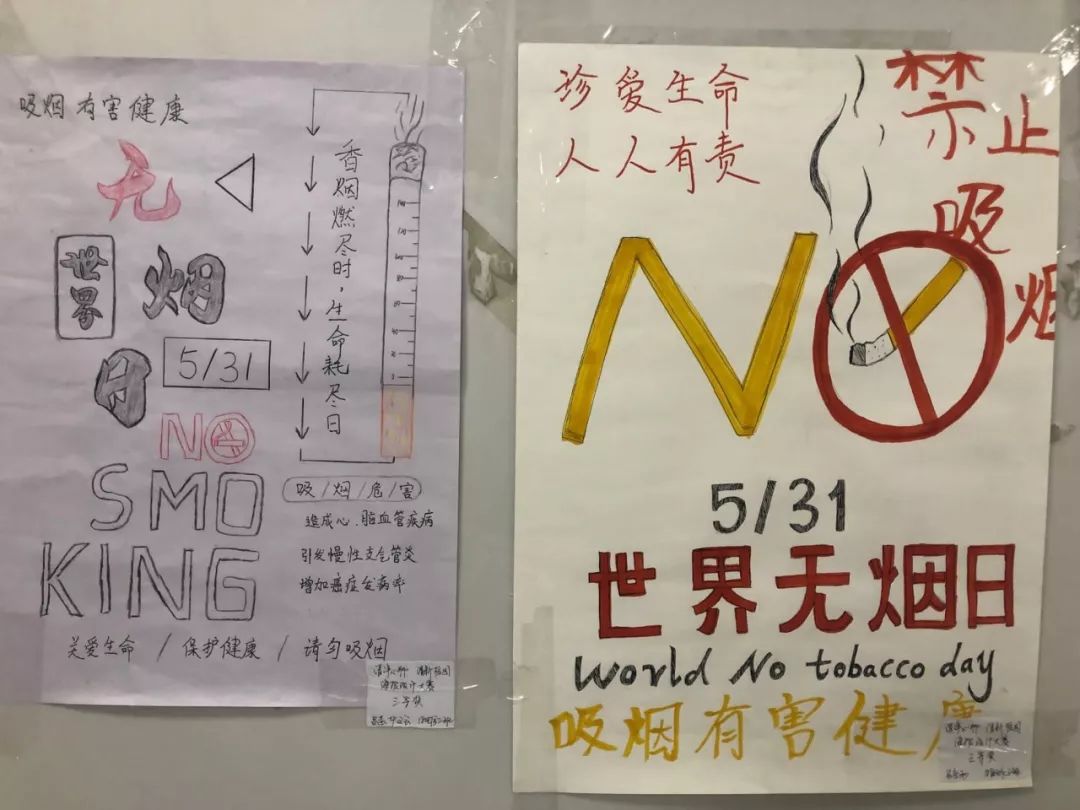 吸烟有害健康
无
世界
烟
5/31
日
NO
SMO
KING
香烟燃尽时，生命耗尽日
吸/烟/危/害
造成心、脑血管疾病
引发慢性支气管炎
增加癌症发病率
关爱生命 / 保护健康 / 请勿吸烟
三等奖
珍爱生命
人人有责
禁止
吸
烟
NO
5/31
世界无烟日
World No tobacco day
吸烟有害健康
三等奖